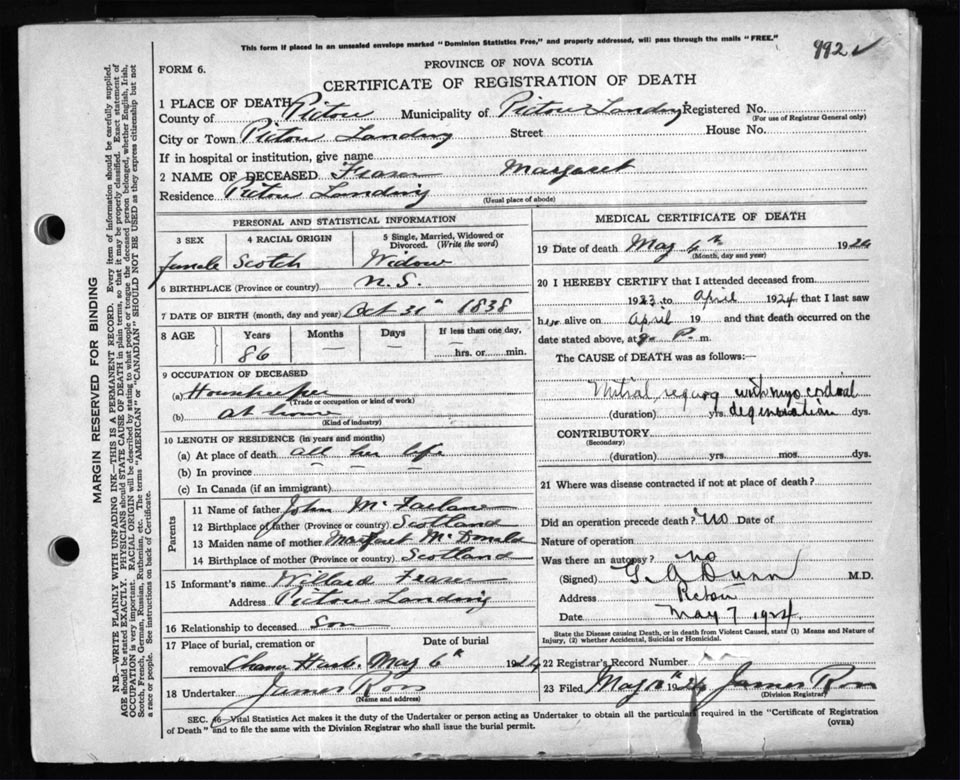 This form if placed in an unsealed envelope marked "Dominion Statistics Free," and properly addressed, will pass through the mails "FREE."
992 ✓
FORM 6.
PROVINCE OF NOVA SCOTIA
CERTIFICATE OF REGISTRATION OF DEATH
MARGIN RESERVED FOR BINDING
N.B.—WRITE PLAINLY WITH UNFADING INK—THIS IS A PERMANENT RECORD. Every item of information should be carefully supplied.
AGE should be stated EXACTLY. PHYSICIANS should STATE CAUSE OF DEATH in plain terms, so that it may be properly classified. Exact statement of
OCCUPATION is very important. RACIAL ORIGIN will be described by stating to what people or tongue the deceased person belonged, whether English, Irish,
Scotch, French, German, Russian, Ruthenian, etc. The terms "AMERICAN" or "CANADIAN" SHOULD NOT BE USED as they express citizenship but not
a race or people. See instructions on back of Certificate.
1 PLACE OF DEATH
County of Pictou Municipality of Pictou Landing Registered No.
(For use of Registrar General only)
City or Town Pictou Landing Street House No.
If in hospital or institution, give name
2 NAME OF DECEASED Fraser Margaret
Residence Pictou Landing
(Usual place of abode)
PERSONAL AND STATISTICAL INFORMATION
3 SEX 4 RACIAL ORIGIN 5 Single, Married, Widowed or Divorced. (Write the word)
female Scotch Widow
6 BIRTHPLACE (Province or country) N.S.
7 DATE OF BIRTH (month, day and year) Oct 31 1838
8 AGE Years Months Days If less than one day,
86 — — hrs. or min.
9 OCCUPATION OF DECEASED
(a) Housekeeper
(Trade or occupation or kind of work)
(b) at home
(Kind of industry)
10 LENGTH OF RESIDENCE (in years and months)
(a) At place of death all her life
(b) In province — — —
(c) In Canada (if an immigrant)
Parents
11 Name of father John McFarlane
12 Birthplace of father (Province or country) Scotland
13 Maiden name of mother Margaret McDonald
14 Birthplace of mother (Province or country) Scotland
15 Informant's name Willard Fraser
Address Pictou Landing
16 Relationship to deceased son
17 Place of burial, cremation or Date of burial
removal Chance Harb. May 6th 1924
18 Undertaker James Ross
(Name and address)
MEDICAL CERTIFICATE OF DEATH
19 Date of death May 4th 1924
(Month, day and year)
20 I HEREBY CERTIFY that I attended deceased from
1923 to April 1924 that I last saw
her alive on April 19 and that death occurred on
date stated above, at P. m.
The CAUSE of DEATH was as follows:—
Mitral regurg with myocardial
(duration) yrs. degeneration dys.
CONTRIBUTORY
(Secondary)
(duration) yrs. mos. dys.
21 Where was disease contracted if not at place of death?
Did an operation precede death? No Date of
Nature of operation
Was there an autopsy? no
(Signed) G A Dunn M.D.
Address Pictou
Date May 7 1924
State the Disease causing Death, or in death from Violent Causes, state (1) Means and Nature of
Injury, (2) whether Accidental, Suicidal or Homicidal.
22 Registrar's Record Number
23 Filed May 1924 James Ross
(Division Registrar)
SEC. 46—Vital Statistics Act makes it the duty of the Undertaker or person acting as Undertaker to obtain all the particulars required in the "Certificate of Registration
of Death" and to file the same with the Division Registrar who shall issue the burial permit.
(OVER)